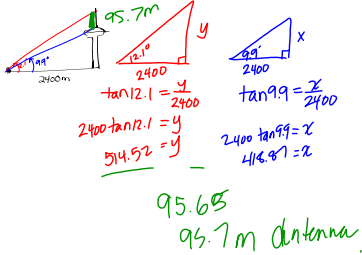 95.7m
12.1° 9.9°
2400m
y
12.1°
2400
tan12.1 = y/2400
2400tan12.1 = y
514.52 = y
x
9.9°
2400
tan9.9 = x/2400
2400 tan9.9 = x
418.87 = x
95.65
95.7m Antenna.